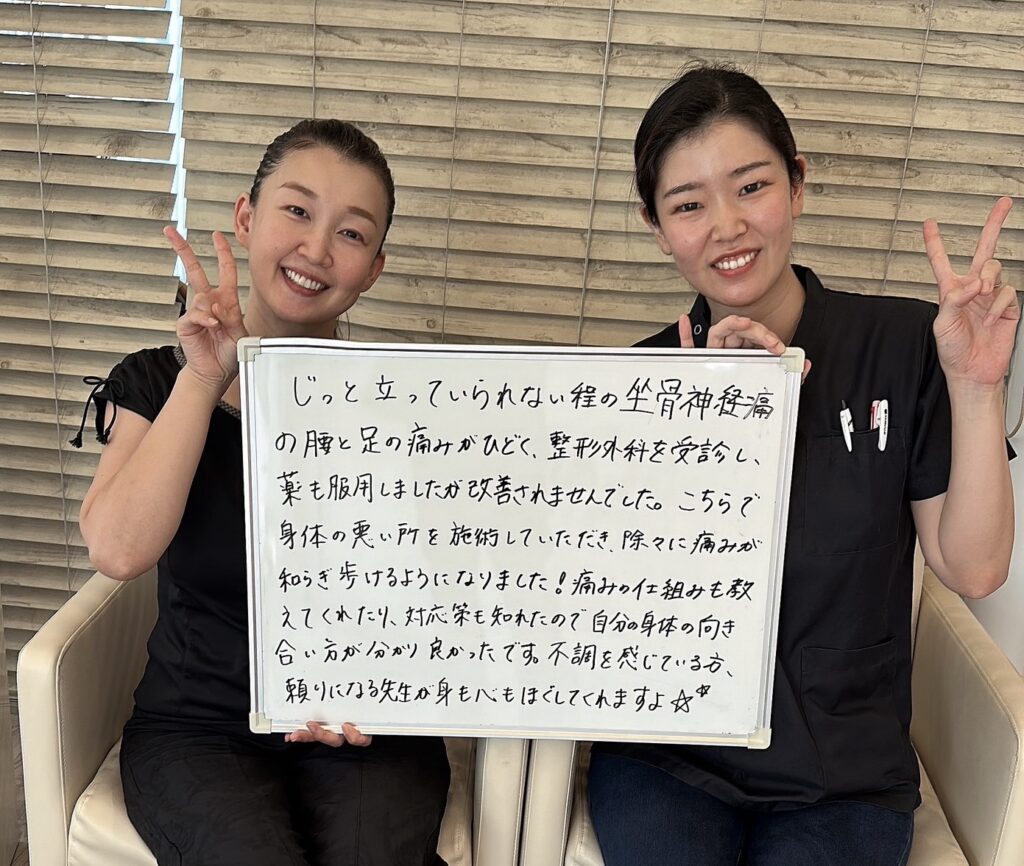 じっと立っていられない程の坐骨神経痛
の腰と足の痛みがひどく、整形外科を受診し、
薬も服用しましたが改善されませんでした。こちらで
身体の悪い所を施術していただき、除々に痛みが
和らぎ歩けるようになりました!痛みの仕組みも教
えてくれたり、対応策も知れたので自分の身体の向き
合い方が分かり良かったです。不調を感じている方、
頼りになる先生が身も心もほぐしてくれますよ☆*